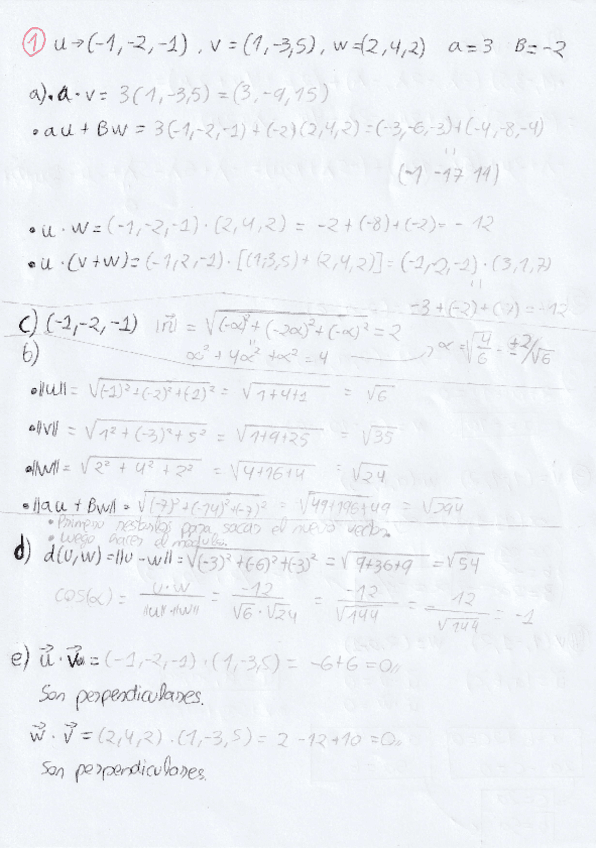 ① u→(-1, -2, -1) , v = (1, -3,5) , w=(2,4,2) a=3 B=-2
a)• a · v = 3(1, -3,5) = (3, -9, 15)
• au + Bw = 3(-1,-2,-1)+(-2)(2,4,2)=(-3,-6,-3)+(-4,-8,-4)
"
• u · w = (-1, -2,-1) · (2,4,2) = -2+(-8)+(-2)= - 12
• u · (v+w)= (-1,2,-1) · [(1,3,5)+(2,4,2)]= (-1,-2,-1) · (3,1,7)
"
-3+(-2)+(-7)=-12
c) (-1,-2,-1) = √(-α)²+(-2α)²+(-α)² = 2
α² + 4α² + α² = 4 → α = √4/6 = ±2/√6
b)
• ||u|| = √(-1)²+(-2)²+(1)² = √1+4+1 = √6
• ||v|| = √1² + (-3)² + 5² = √1+9+25 = √35
• ||w|| = √2² + 4² + 2² = √4+16+4 = √24
• ||au + Bw|| = √(-7)²+(-14)²+(-7)² = √49+196+49 = √294
• Primero restarlos para sacar el nuevo vector.
• Luego haces el módulo.
d) d(u,w)=||u-w||=√(-3)²+(-6)²+(-3)² = √9+36+9 = √54
cos(α) = u·w / ||u||·||w|| = -12 / √6·√24 = -12 / √144 = - 12 / √144 = -1
e) u⃗ · v⃗ = (-1,-2,-1) · (1,-3,5) = -6+6=0
Son perpendiculares.
w⃗ · v⃗ = (2,4,2) · (1,-3,5) = 2 -12+10 =0
Son perpendiculares.